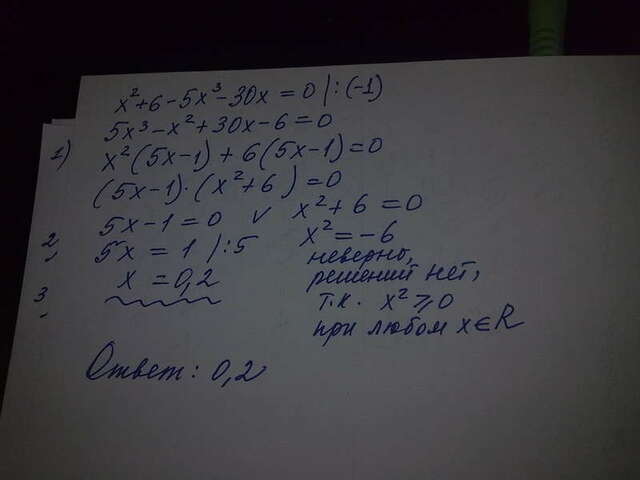 x²+6-5x³-30x=0 |:(-1)
5x³-x²+30x-6=0
1) x²(5x-1)+6(5x-1)=0
(5x-1)·(x²+6)=0
5x-1=0 v x²+6=0
2, 5x=1 |:5 x²=-6
неверно,
3. x=0,2 решений нет,
т.к. x²⩾0
при любом x∈R
Ответ: 0,2